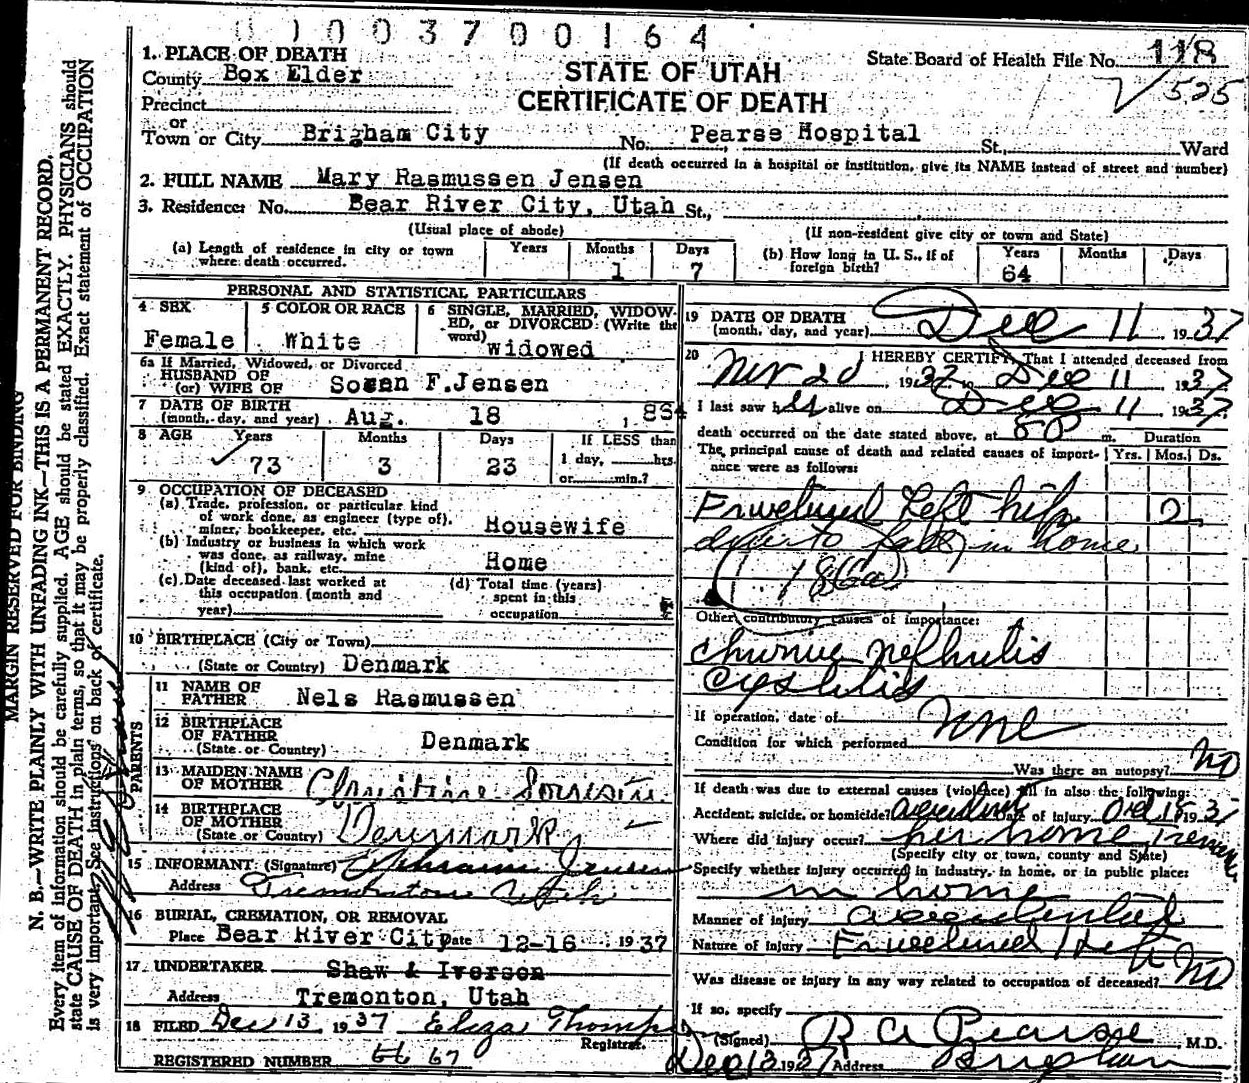 0 1 0 0 3 7 0 0 1 6 4
1. PLACE OF DEATH
County Box Elder
STATE OF UTAH
State Board of Health File No. 118
Precinct
CERTIFICATE OF DEATH
525
or
Town or City Brigham City No. Pearse Hospital St., Ward
(If death occurred in a hospital or institution, give its NAME instead of street and number)
2. FULL NAME Mary Rasmussen Jensen
3. Residence: No. Bear River City, Utah St.,
(Usual place of abode) (If non-resident give city or town and State)
(a) Length of residence in city or town where death occurred. Years Months 1 Days 7
(b) How long in U. S., if of foreign birth? Years 64 Months Days
PERSONAL AND STATISTICAL PARTICULARS
4 SEX Female
5 COLOR OR RACE White
6 SINGLE, MARRIED, WIDOWED, or DIVORCED: (Write the word) widowed
6a If Married, Widowed, or Divorced
HUSBAND OF
(or) WIFE OF Soren F.Jensen
7 DATE OF BIRTH
(month, day, and year) Aug. 18 , 1864
8 AGE Years 73 Months 3 Days 23
If LESS than 1 day, hrs. or min.?
9 OCCUPATION OF DECEASED
(a) Trade, profession, or particular kind of work done, as engineer (type of), miner, bookkeeper, etc. Housewife
(b) Industry or business in which work was done, as railway, mine (kind of), bank, etc. Home
(c) Date deceased last worked at this occupation (month and year)
(d) Total time (years) spent in this occupation
10 BIRTHPLACE (City or Town)
(State or Country) Denmark
PARENTS
11 NAME OF FATHER Nels Rasmussen
12 BIRTHPLACE OF FATHER
(State or Country) Denmark
13 MAIDEN NAME OF MOTHER Christine
14 BIRTHPLACE OF MOTHER
(State or Country) Denmark
15 INFORMANT: (Signature) Ephraim Jensen
Address Tremonton Utah
16 BURIAL, CREMATION, OR REMOVAL
Place Bear River City Date 12-16 1937
17 UNDERTAKER Shaw & Iverson
Address Tremonton, Utah
18 FILED Dec 13 1937 Eliza Thomp
Registrar.
REGISTERED NUMBER 67
19 DATE OF DEATH
(month, day, and year) Dec 11 1937
20 I HEREBY CERTIFY, That I attended deceased from
Nov 20 1937 to Dec 11 1937
I last saw her alive on Dec 11 1937
death occurred on the date stated above, at 8 P m.
The principal cause of death and related causes of importance were as follows: Duration Yrs. Mos. Ds.
Fractured Left hip 2
due to fall in home
186a
Other contributory causes of importance:
Chronic Nephritis
Cystitis
If operation, date of None
Condition for which performed
Was there an autopsy? No
If death was due to external causes (violence) fill in also the following:
Accident, suicide, or homicide? accident Date of injury Oct 18 1937
Where did injury occur? her home
(Specify city or town, county and State)
Specify whether injury occurred in industry, in home, or in public place:
in home
Manner of injury accidental
Nature of injury Fractured
Was disease or injury in any way related to occupation of deceased? No
If so, specify
(Signed) R A Pearse M.D.
Dec 13 1937 Address Brigham
MARGIN RESERVED FOR BINDING
N. B.—WRITE PLAINLY WITH UNFADING INK—THIS IS A PERMANENT RECORD.
Every item of information should be carefully supplied. AGE should be stated EXACTLY. PHYSICIANS should
state CAUSE OF DEATH in plain terms, so that it may be properly classified. Exact statement of OCCUPATION
is very important. See instructions on back of certificate.